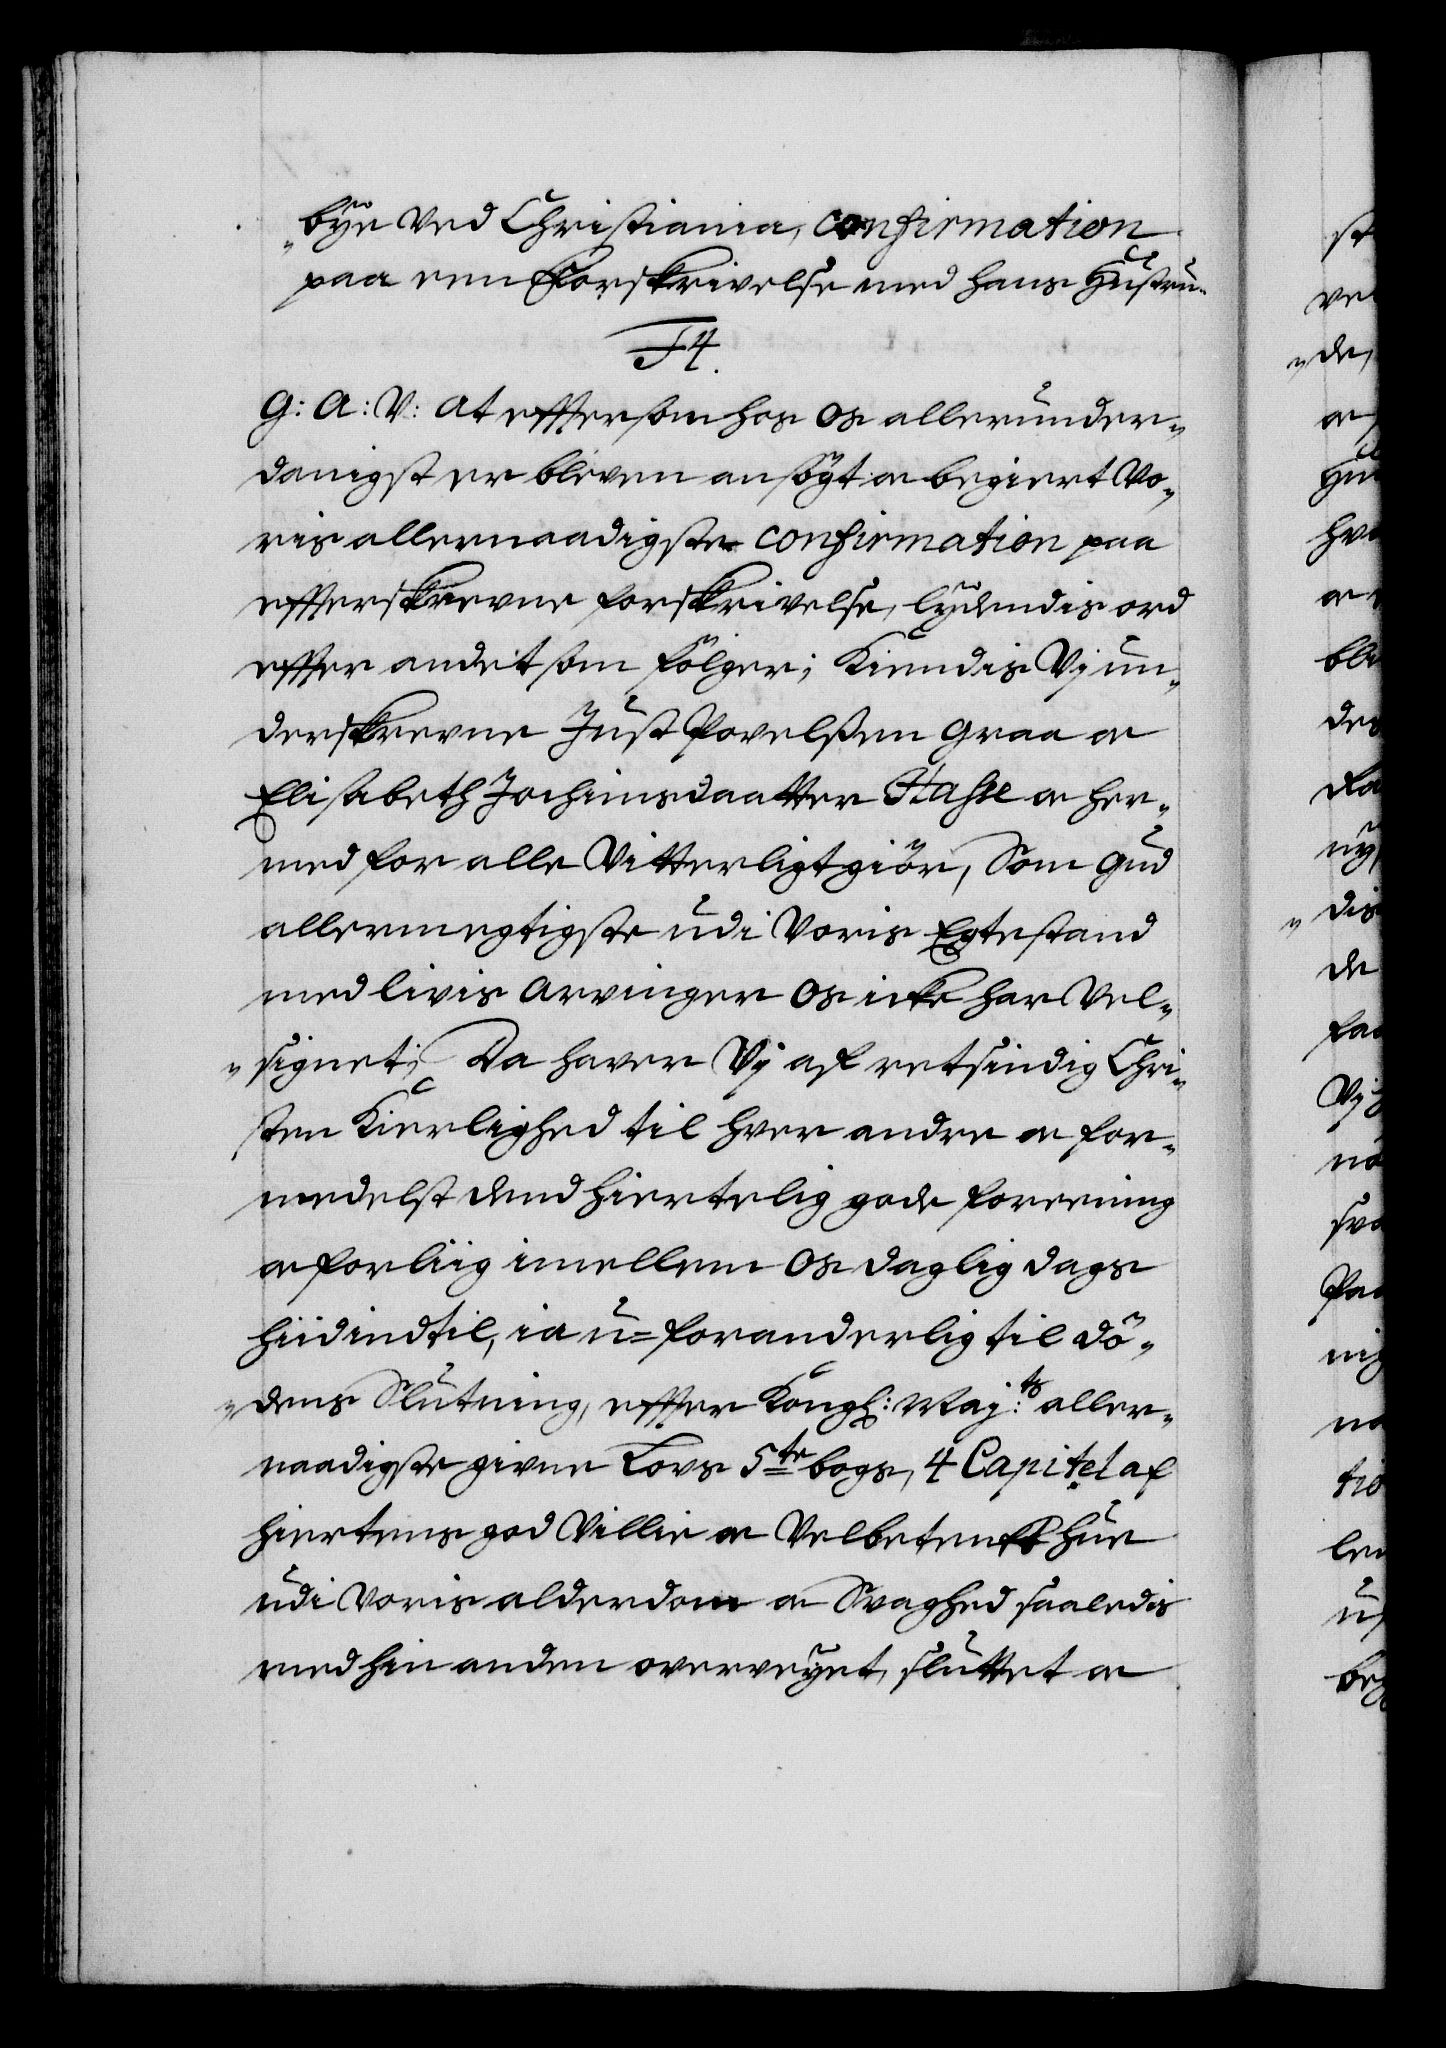 "bÿe ved Christiania, confirmation
paa een Forskrivelse med hans Hustru.
F4.
G: A: V: at eftersom hos os allerunder„
danigst er bleven ansögt og begiert Vo„
ris allernaadigste confirmation paa
efterskrevne forskrivelse, lydendis ord
efter andet som fölger; Kiendis Vj un„
derskrevne Just Povelsen Graa og
Elisabeth Jochimsdaatter Hasse og her„
med for alle Vitterligt giör, Som Gud
allermegtigste udi Voris Egtestand
med livis arvinger os icke har Vel„
„signet; Da haver Vj af retsindig Chri„
sten Kierlighed til hver andre og for„
medelst dend hiertelig gode foreening
og forliig imellem os daglig dags
hiidindtil, ia u=foranderlig til Dö„
„dens Slutning, efter Kongl: May:ts aller„
naadigste givne Lovs 5te bogs, 4 Capitel af
hiertens god Villie og Velbetenckt hue
udi voris alderdom og Svaghed saaledis
med hin anden overveyet, sluttet og